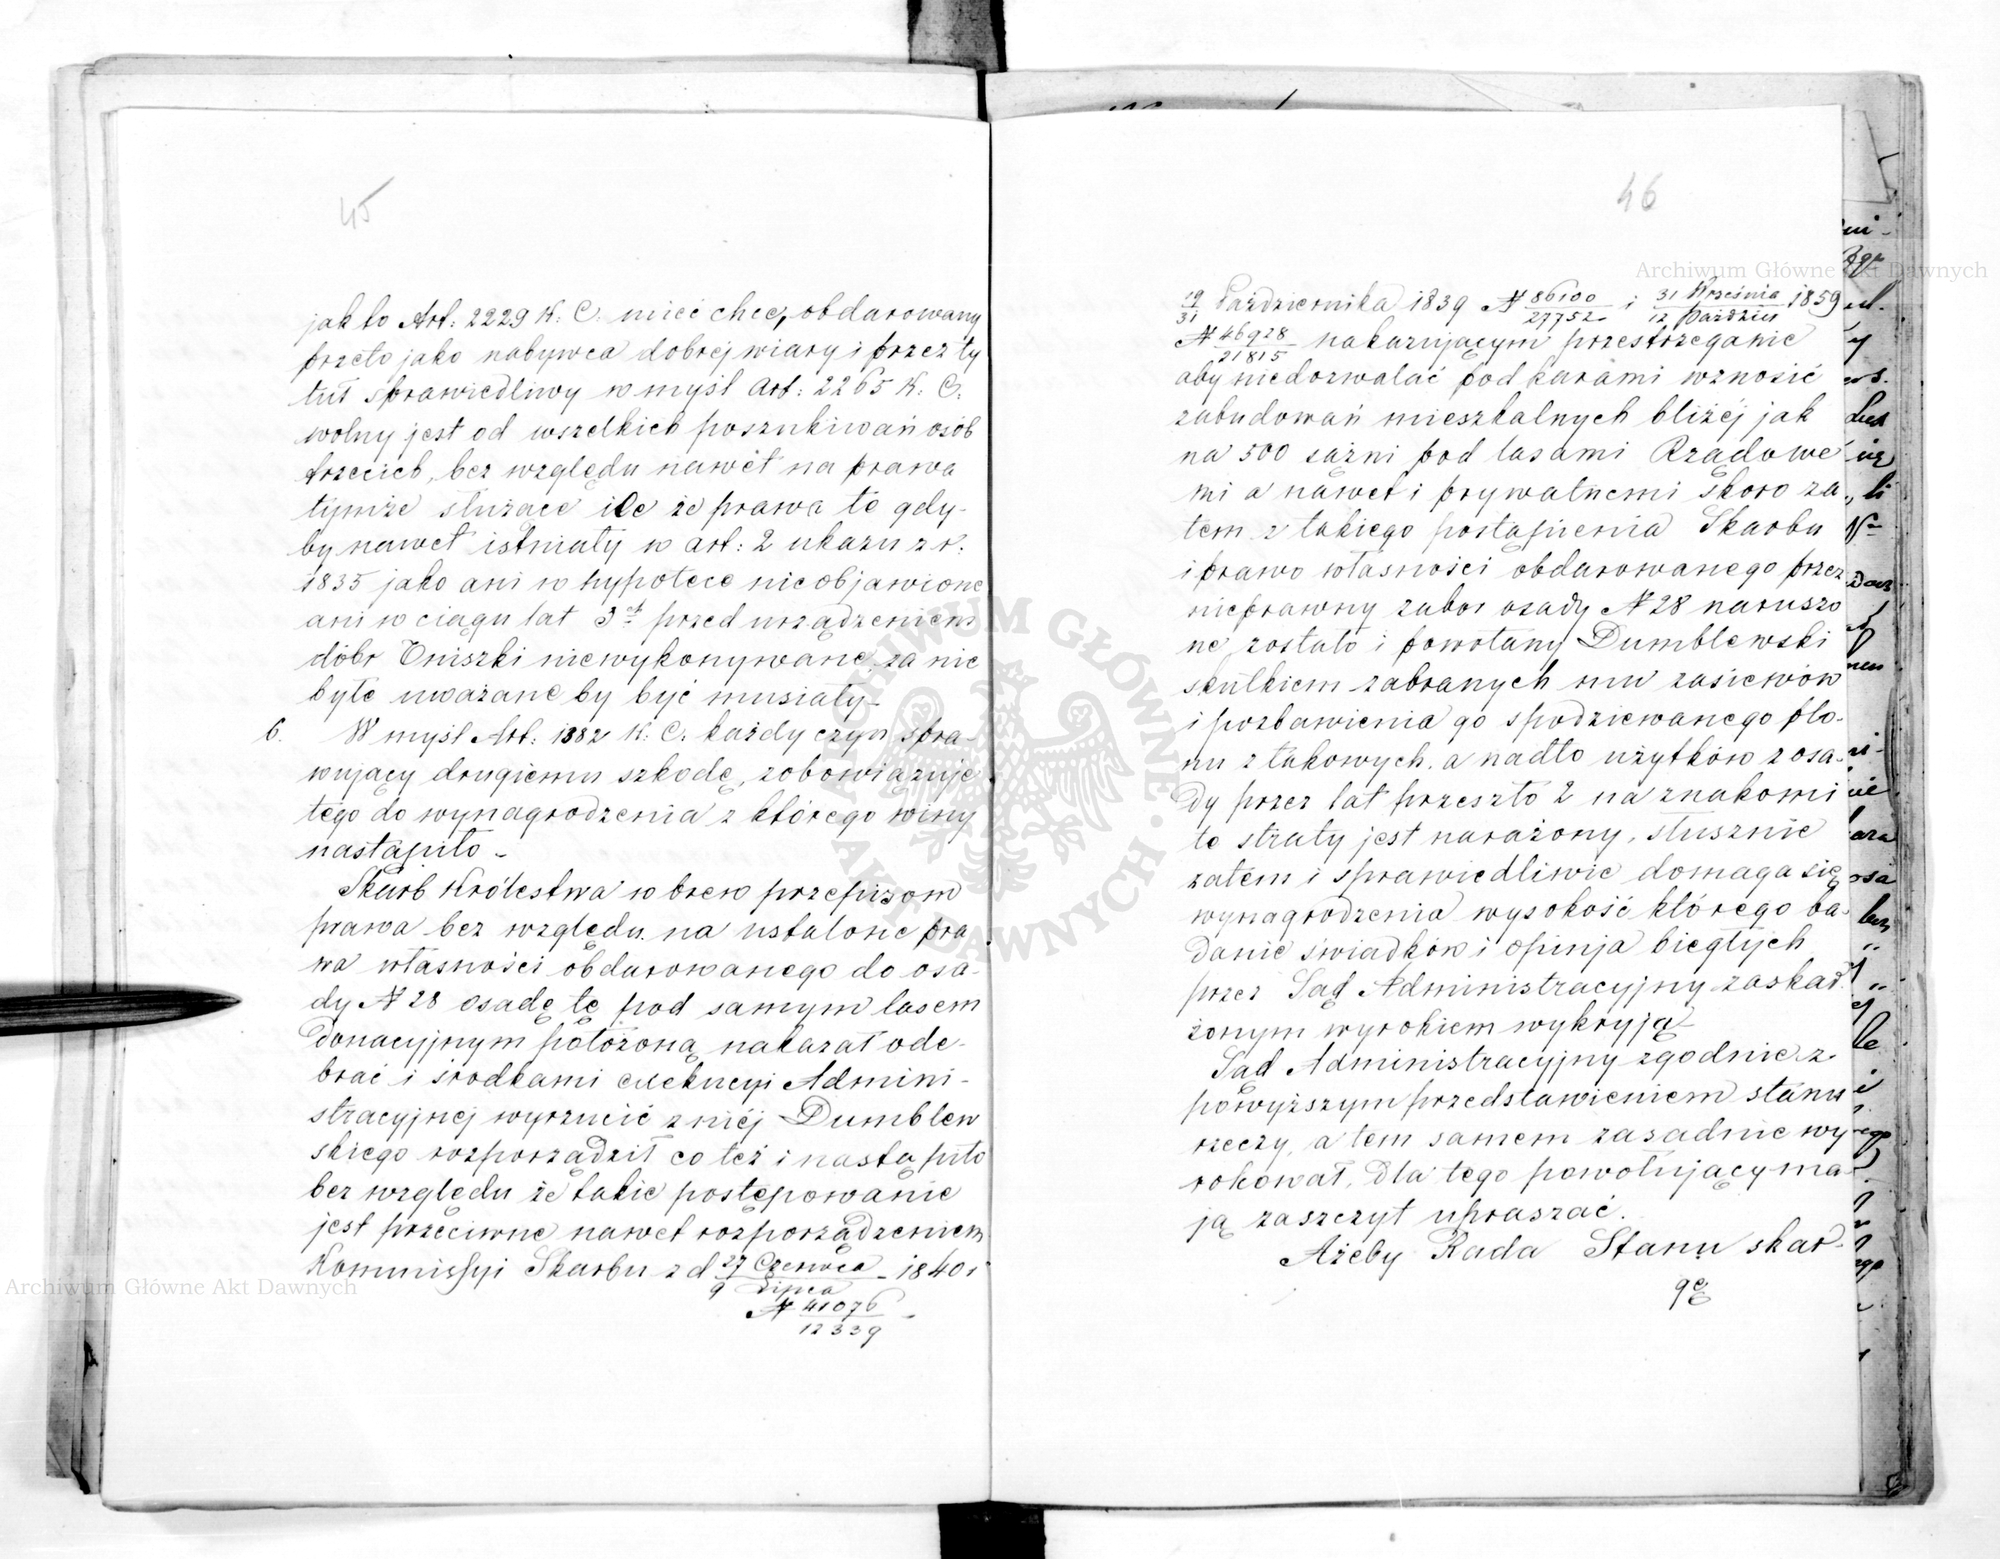 45
jak to Art: 2229 K. C. mieć chce, obdarowany
przeto jako nabywca dobrej wiary i przez ty
tuł sprawiedliwy w myśl Art: 2265 K. C.
wolny jest od wszelkich poszukiwań osób
trzecich, bez względu nawet na prawa
tymże służące ile że prawa te gdy-
by nawet istniały w art: 2 ukazu z r.
1835 jako ani w hypotece nieobjawione
ani w ciągu lat 3ch przed urządzeniem
dóbr Oniszki niewykonywane, za nie
byłe uważane by być musiały_
6. W myśl Art: 1382 K. C. każdy czyn spra-
wujący drugiemu szkodę, zobowiązuje
tego do wynagrodzenia z którego winy
nastąpiło _
Skarb Królestwa wbrew przepisom
prawa bez względu na ustalone pra
wa własności obdarowanego do osa-
dy N 28 osadę tę pod samym lasem
donacyjnym położoną nakazał ode-
brać i środkami exekucyi Admini-
stracyjnej wyrzucić z niéj Dumblew
skiego rozporządził co też i nastąpiło
bez względu że takie postępowanie
jest przeciwne nawet rozporządzeniem
Kommissyi Skarbu z d 27 Czerwca / 9 Lipca 1840 r
N 41076 / 12339
46
19/31 Października 1839 N 86100/27752 i 31 Września / 12 Paździer 1859
N 46928/21815 nakazującym przestrzeganie
aby niedozwalać pod karami wznosić
zabudowań mieszkalnych bliżéj jak
na 500 sążni pod lasami Rządowe
mi a nawet i prywatnemi skoro za
tem z takiego postąpienia Skarbu
i prawo własności obdarowanego przez
nieprawny zabor osady N 28 naruszo
ne zostało i powołany Dumblewski
skutkiem zabranych mu zasiewów
i pozbawienia go spodziewanego plo-
nu z takowych, a nadto użytków z osa-
dy przez lat przeszło 2 na znakomi
te straty jest narażony, słusznie
zatém i sprawiedliwie domaga się
wynagrodzenia wysokość którego ba-
danie świadków i opinja biegłych
przez Sąd Administracyjny zaskar-
żonym wyrokiem wykryją_
Sąd Administracyjny zgodnie z
powyższym przedstawieniem stanu
rzeczy, a tem samem zasadnie wy
rokował, dla tego powołujący ma-
ją zaszczyt upraszać.
Ażeby Rada Stanu skar-
gę
Archiwum Główne Akt Dawnych
Archiwum Główne Akt Dawnych
ARCHIWUM GŁÓWNE AKT DAWNYCH